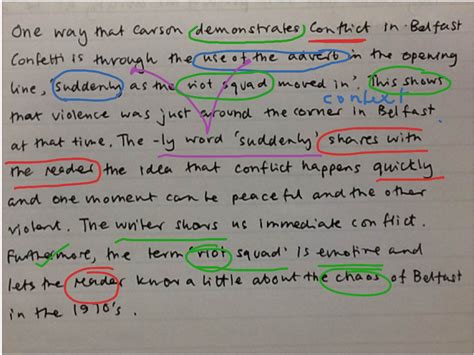 One way that Carson demonstrates conflict in Belfast
Confetti is through the use of the adverb in the opening
line, 'suddenly as the riot squad moved in'. This shows
context
that violence was just around the corner in Belfast
at that time. The -ly word 'suddenly' shares with
the reader the idea that conflict happens quickly
and one moment can be peaceful and the other
violent. The writer shows us immediate conflict.
Furthermore, the term 'riot squad' is emotive and
lets the reader know a little about the chaos of Belfast
in the 1970's.